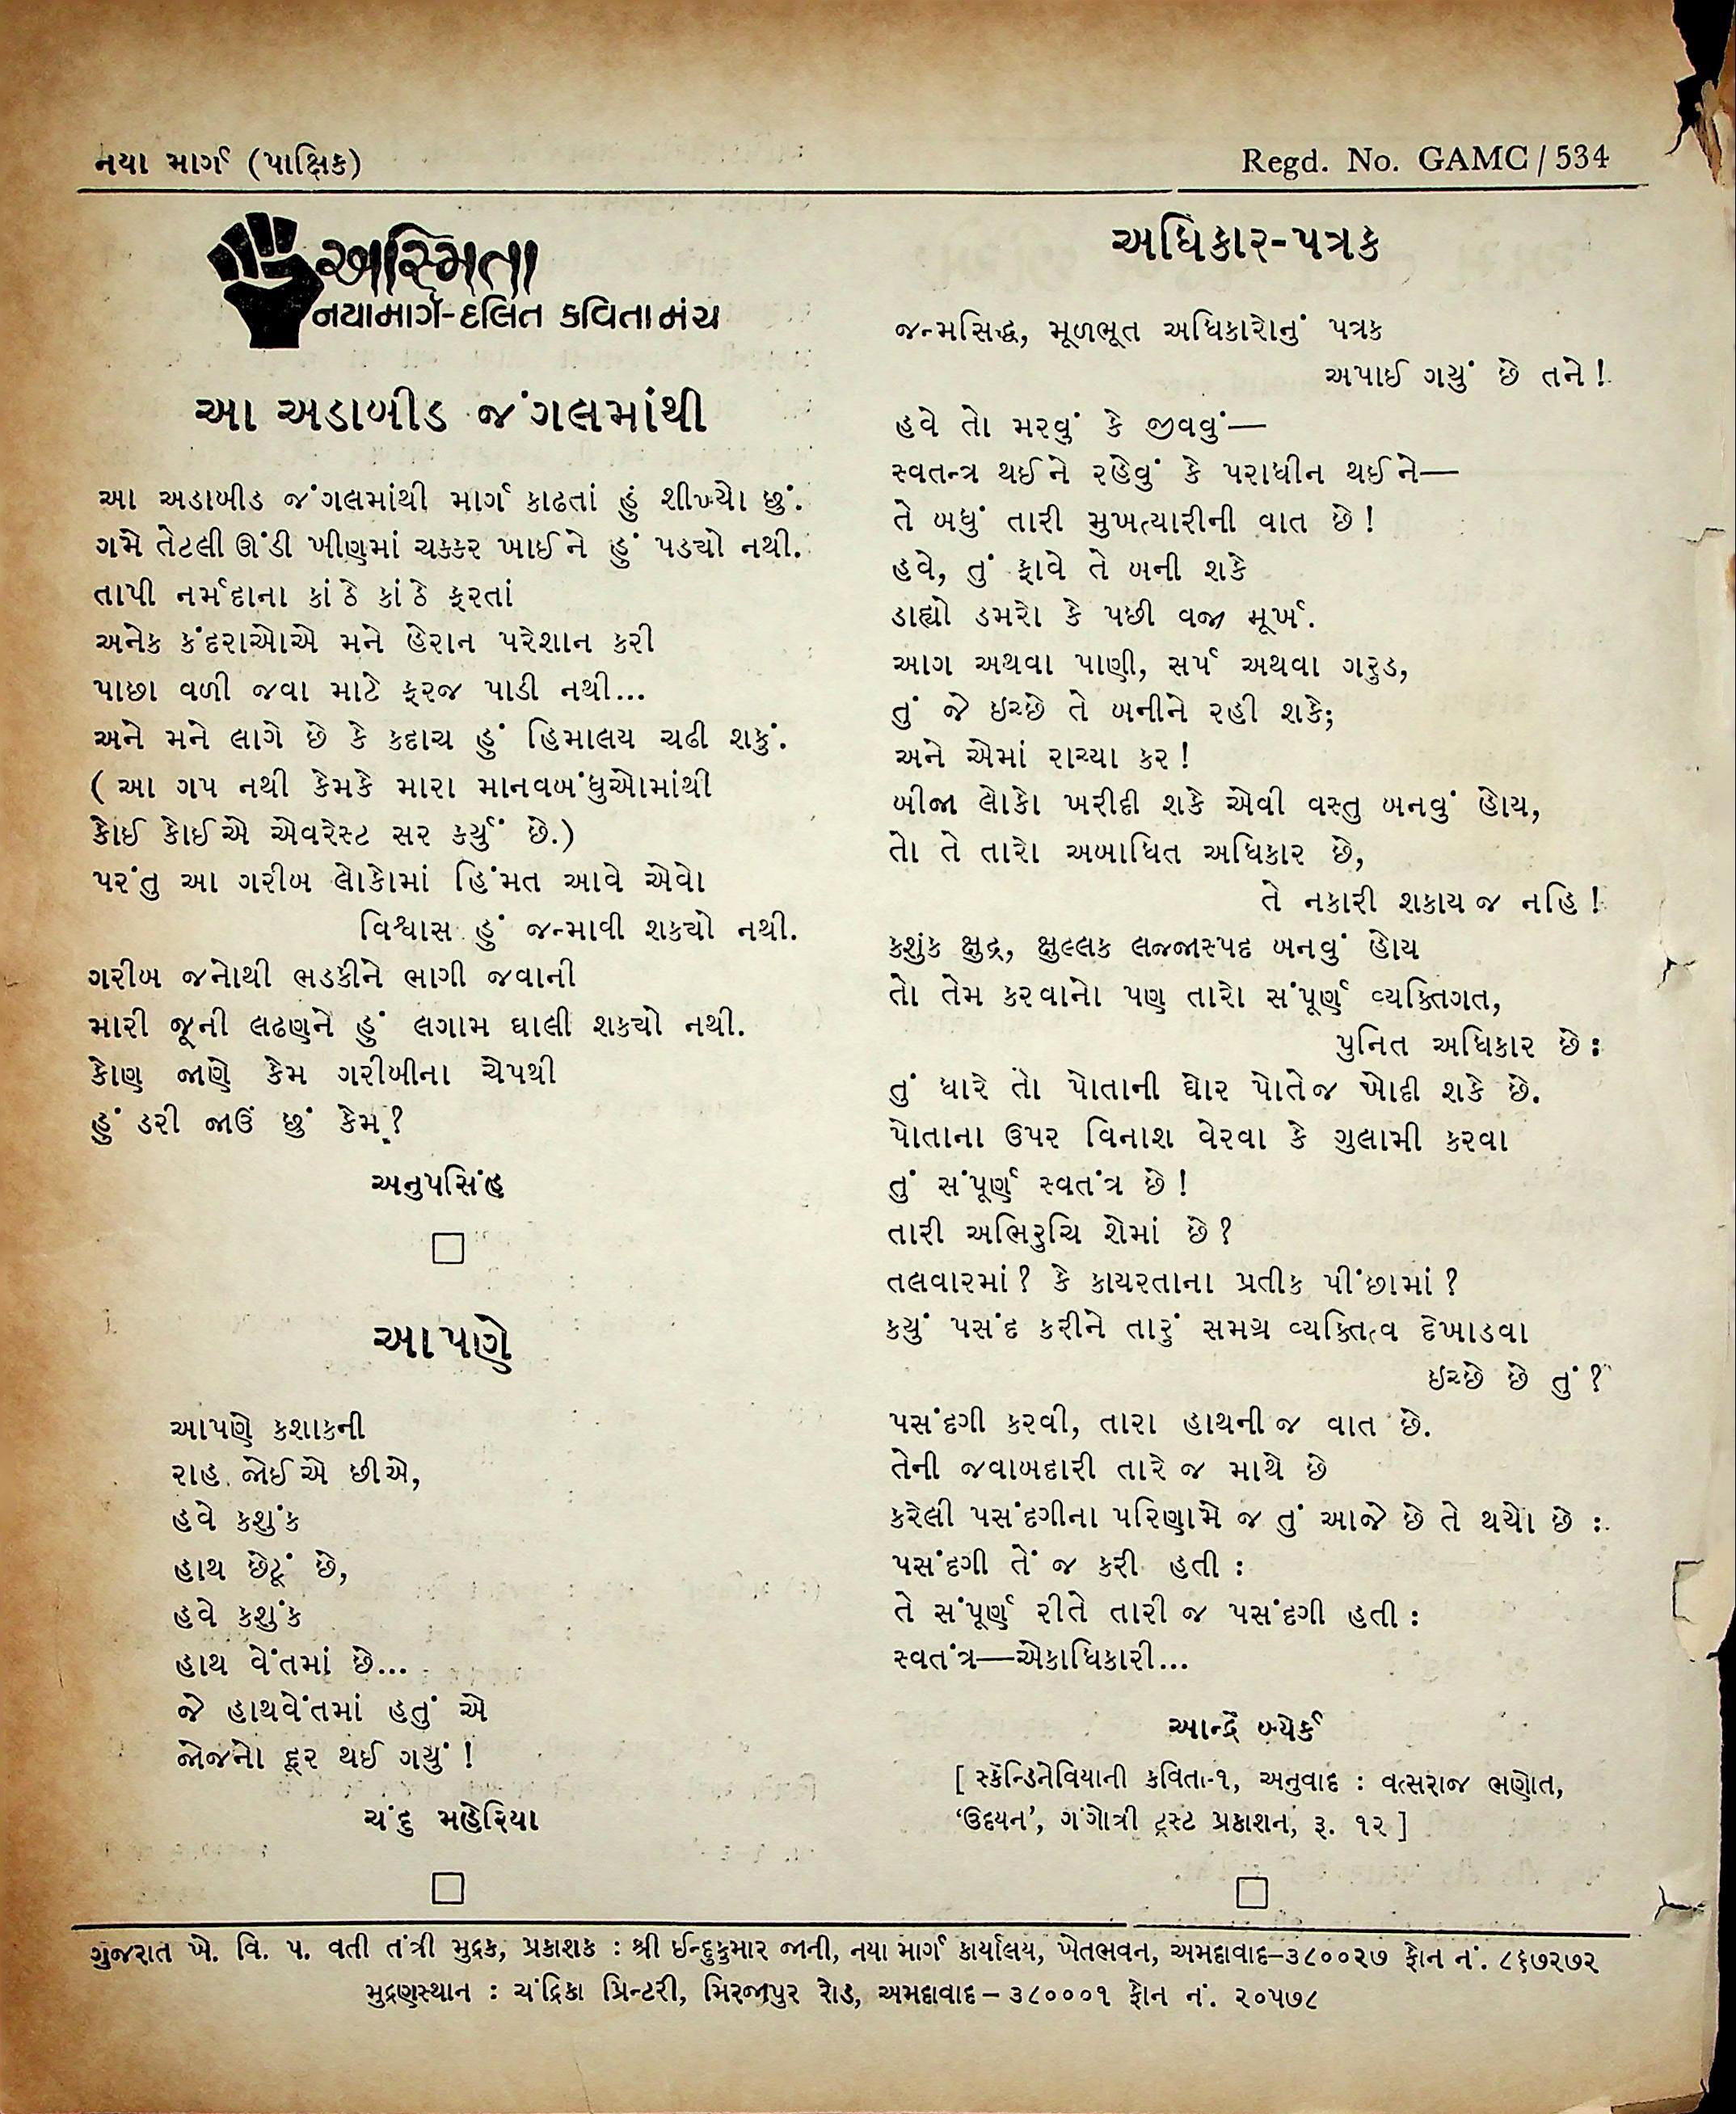 નયા માર્ગ (પાક્ષિક)
Regd. No. GAMC/534
અસ્મિતા
નયામાર્ગ-દલિત કવિતા મંચ
આ અડાબીડ જંગલમાંથી
આ અડાબીડ જંગલમાંથી માર્ગ કાઢતાં હું શીખ્યો છું.
ગમે તેટલી ઊંડી ખીણમાં ચક્કર ખાઈને હું પડ્યો નથી.
તાપી નર્મદાના કાંઠે કાંઠે ફરતાં
અનેક કંદરાઓએ મને હેરાન પરેશાન કરી
પાછા વળી જવા માટે ફરજ પાડી નથી...
અને મને લાગે છે કે કદાચ હું હિમાલય ચઢી શકું.
( આ ગપ નથી કેમકે મારા માનવબંધુઓમાંથી
કોઈ કોઈએ એવરેસ્ટ સર કર્યું છે.)
પરંતુ આ ગરીબ લોકોમાં હિંમત આવે એવો
વિશ્વાસ હું જન્માવી શક્યો નથી.
ગરીબ જનોથી ભડકીને ભાગી જવાની
મારી જૂની લઢણને હું લગામ ઘાલી શક્યો નથી.
કોણ જાણે કેમ ગરીબીના ચેપથી
હું ડરી જાઉં છું કેમ?
અનુપસિંહ
આપણે
આપણે કશાકની
રાહ જોઈએ છીએ,
હવે કશુંક
હાથ છેટૂં છે,
હવે કશુંક
હાથ વેંતમાં છે...
જે હાથવેંતમાં હતું એ
જોજનો દૂર થઈ ગયું !
ચંદુ મહેરિયા
અધિકાર-પત્રક
જન્મસિદ્ધ, મૂળભૂત અધિકારોનું પત્રક
અપાઈ ગયું છે તને !
હવે તો મરવું કે જીવવું—
સ્વતન્ત્ર થઈને રહેવું કે પરાધીન થઈને—
તે બધું તારી મુખત્યારીની વાત છે !
હવે, તું ફાવે તે બની શકે
ડાહ્યો ડમરો કે પછી વજ્ર મૂર્ખ.
આગ અથવા પાણી, સર્પ અથવા ગરુડ,
તું જે ઇચ્છે તે બનીને રહી શકે;
અને એમાં રાચ્યા કર !
બીજા લોકો ખરીદી શકે એવી વસ્તુ બનવું હોય,
તો તે તારો અબાધિત અધિકાર છે,
તે નકારી શકાય જ નહિ !
કશુંક ક્ષુદ્ર, ક્ષુલ્લક લજ્જાસ્પદ બનવું હોય
તો તેમ કરવાનો પણ તારો સંપૂર્ણ વ્યક્તિગત,
પુનિત અધિકાર છે :
તું ધારે તો પોતાની ઘોર પોતેજ ખોદી શકે છે.
પોતાના ઉપર વિનાશ વેરવા કે ગુલામી કરવા
તું સંપૂર્ણ સ્વતંત્ર છે !
તારી અભિરુચિ શેમાં છે ?
તલવારમાં ? કે કાયરતાના પ્રતીક પીંછામાં ?
કયું પસંદ કરીને તારું સમગ્ર વ્યક્તિત્વ દેખાડવા
ઇચ્છે છે તું ?
પસંદગી કરવી, તારા હાથની જ વાત છે.
તેની જવાબદારી તારે જ માથે છે
કરેલી પસંદગીના પરિણામે જ તું આજે છે તે થયો છે :
પસંદગી તેં જ કરી હતી :
તે સંપૂર્ણ રીતે તારી જ પસંદગી હતી :
સ્વતંત્ર—એકાધિકારી...
આન્દ્રે બ્યેર્ક
[ સ્કૅન્ડિનેવિયાની કવિતા-૧, અનુવાદ : વત્સરાજ ભણોત,
‘ઉદયન’, ગંગોત્રી ટ્રસ્ટ પ્રકાશન, રૂ. ૧૨ ]
ગુજરાત ખે. વિ. પ. વતી તંત્રી મુદ્રક, પ્રકાશક : શ્રી ઈન્દુકુમાર જાની, નયા માર્ગ કાર્યાલય, ખેતભવન, અમદાવાદ-૩૮૦૦૨૭ ફોન નં. ૮૬૭૨૭૨
મુદ્રણસ્થાન : ચંદ્રિકા પ્રિન્ટરી, મિરજાપુર રોડ, અમદાવાદ – ૩૮૦૦૦૧ ફોન નં. ૨૦૫૭૮